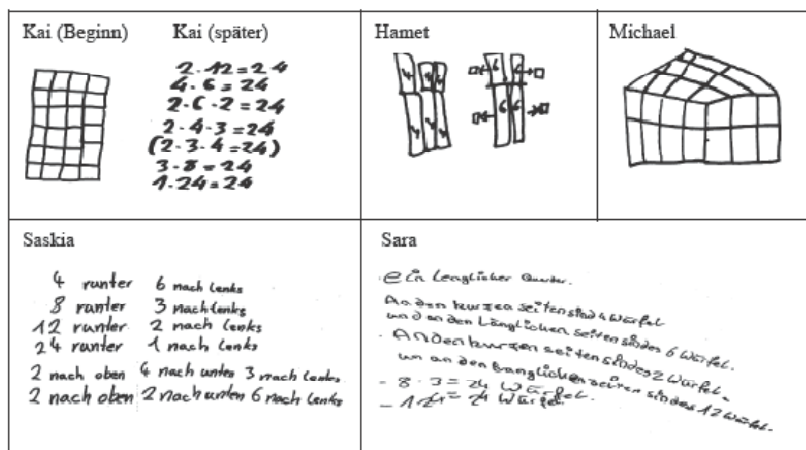 Kai (Beginn)
Kai (später)
2·12=24
4·6=24
2·6·2=24
2·4·3=24
(2·3·4=24)
3·8=24
1·24=24
Hamet
4 4 4
4 4 4
6 6
6 6
Michael
Saskia
4 runter 6 nach lenks
8 runter 3 nach lenks
12 runter 2 nach lenks
24 runter 1 nach lenks
2 nach oben 4 nach unten 3 nach lenks
2 nach oben 2 nach unten 6 nach lenks
Sara
ein länglicher Quarder.
An den kurzen seiten sind 4 Würfel
und an den Länglichen seiten sindes 6 Würfel.
- An den kurzen seiten sindes 2 Würfel.
un an den länglichen seiten sindes 12 Würfel.
- 8·3=24 Würfel.
- 24 Würfel